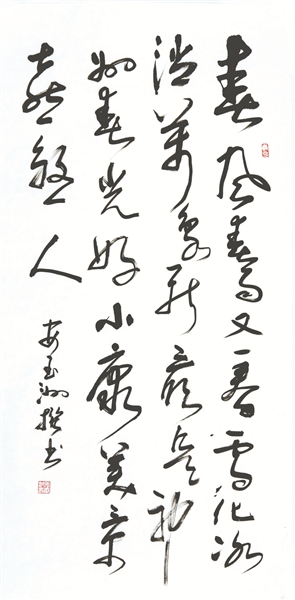 春风春雨又一春雪化冰
消万象新最是神
州春光好小康美景
喜煞人
安玉洲撰书